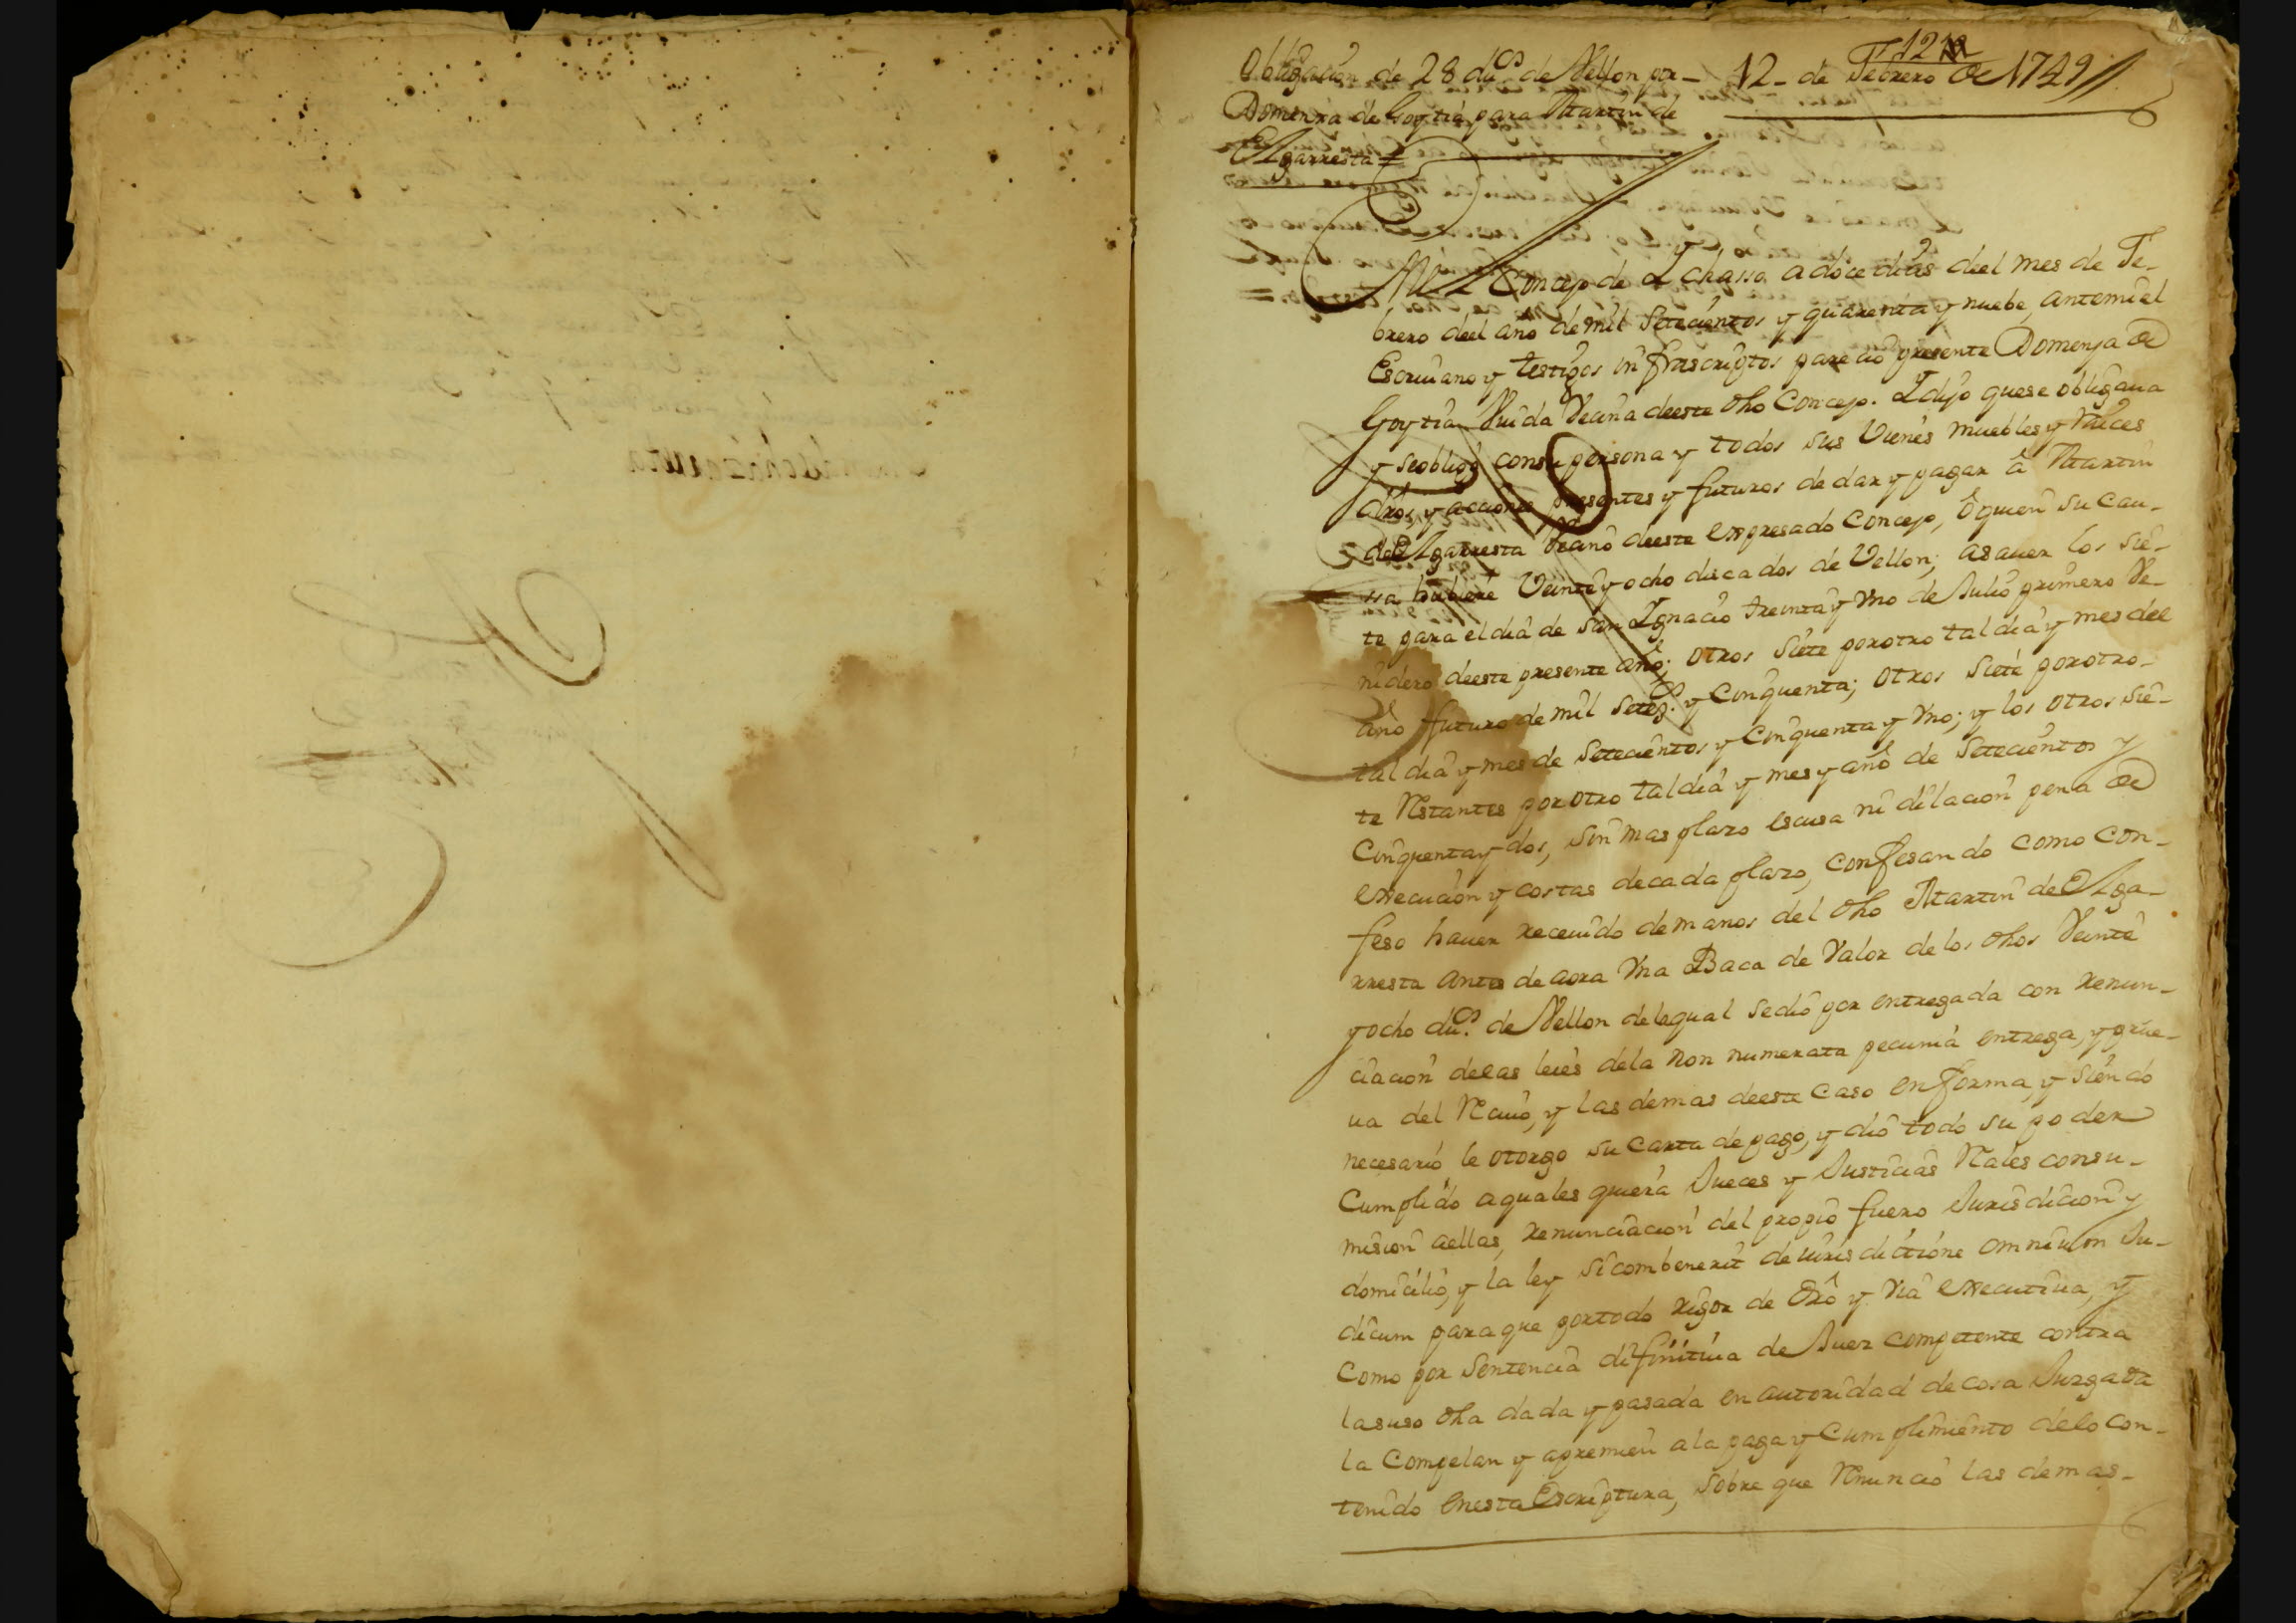 121
Obligacion de 28 du.os de Vellon por
Domenxa de Goytia para Martin de
Elgarresta =
12 de Febrero de 1749
En el Concejo de Ychasso a doce dias deel mes de Fe-
brero deel año de mil Setecientos y quarenta y nuebe, antemi el
Escriuano y testigos infrascriptos parecio presente Domenja de
Goytia Viuda Vecina deeste dho Concejo. Y dijo quese obligaua
y se obligo consu persona y todos sus Vienes muebles y Raices
dros, y acciones presentes y futuros de dar y pagar â Martin
de Elgarresta Vecino deeste expresado Concejo, ô quien su cau-
sa hubiere Veinte y ocho ducados de Vellon; asauer los sie-
te para el dia de San Ygnacio treinta y Vno de Julio primero Ve-
nidero deeste presente año; otros siete por otro tal dia y mes del
año futuro de mil Seteç.s y Cinquenta; otros siete por otro
tal dia y mes de Setecientos y Cinquenta y Vno; y los otros sie-
te Restantes por otro tal dia y mes y año de Setecientos y
Cinquenta y dos, sin mas plazo escusa ni dilacion pena de
execucion y costas de cada plazo, confesando como con-
feso hauer receuido de manos del dho Martin de Elga-
rresta antes de aora Vna Baca de Valor de los dhos Veinte
y ocho du.os de Vellon delaqual sedio por entregada con renun-
ciacion delas leies dela non numerata pecunia entrega, y prue-
ua del Reciuo, y las demas deeste caso en forma, y siendo
necesario le otorgo su carta de pago, y dio todo su poder
Cumplido aquales quiera Jueces y Justicias Rales consu-
mision aellas, renunciacion del propio fuero Jurisdicion y
domicilio, y la ley sicombenerit de iurisdictione omnium Ju-
dicum para que portodo rigor de dro y via executiua, y
Como por Sentencia difinitiua de Juez competente contra
lasuso dha dada y pasada en autoridad de cosa Juzgada
la Compelan y apremien a la paga y Cumplimiento delo con-
tenido enesta Escriptura, sobre que Renuncio las demas